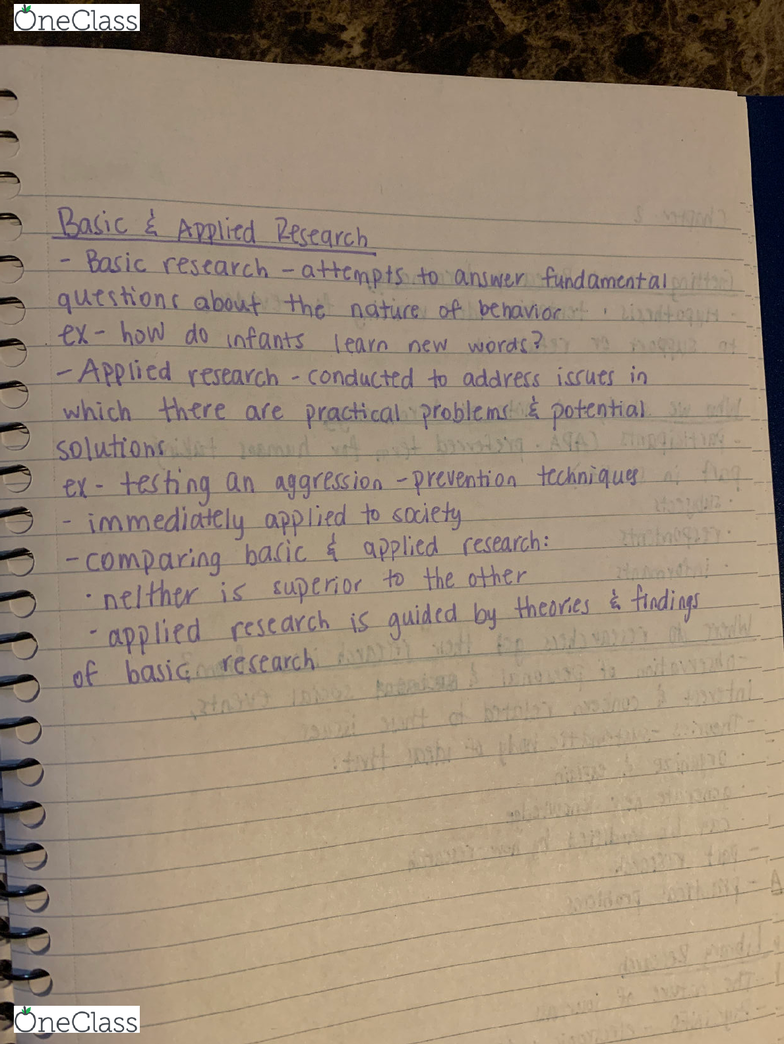 OneClass
Basic & Applied Research
- Basic research - attempts to answer fundamental
questions about the nature of behavior
ex - how do infants learn new words?
- Applied research - conducted to address issues in
which there are practical problems & potential
solutions
ex - testing an aggression - prevention techniques
- immediately applied to society
- comparing basic & applied research:
· neither is superior to the other
· applied research is guided by theories & findings
of basic research
OneClass